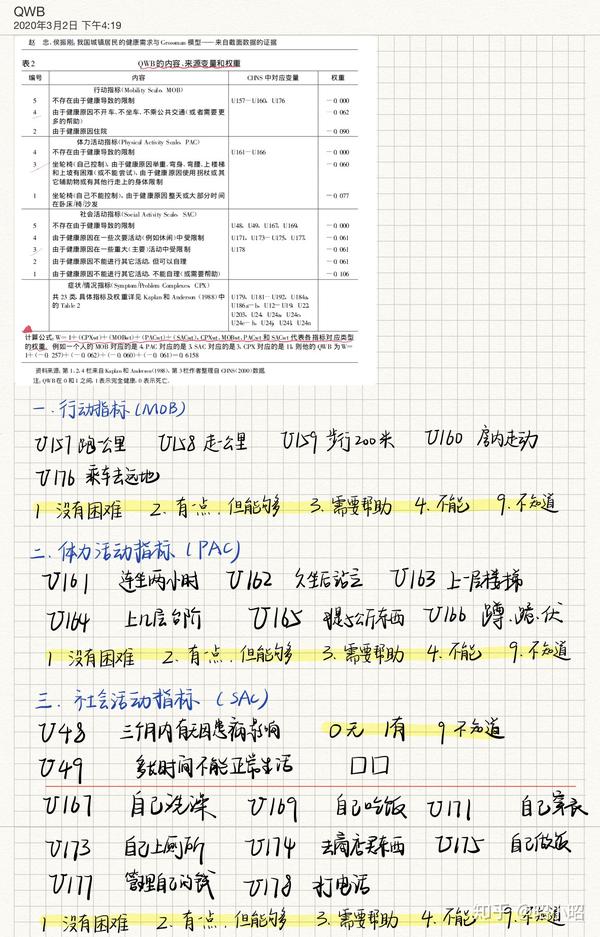 QWB
2020年3月2日 下午4:19
赵 忠、侯振刚:我国城镇居民的健康需求与Grossman模型——来自截面数据的证据
表2 QWB的内容、来源变量和权重
编号 内容 CHNS中对应变量 权重
行动指标(Mobility Scale, MOB)
5 不存在由于健康导致的限制 U157—U160、U176 —0.000
4 由于健康原因不开车、不坐车、不乘公共交通(或者需要更多的帮助) —0.062
2 由于健康原因住院 —0.090
体力活动指标(Physical Activity Scale, PAC)
4 不存在由于健康导致的限制 U161—U166 —0.000
3 坐轮椅(自己控制)、由于健康原因举重、弯身、弯腰、上楼梯和上坡有困难(或不能尝试)、由于健康原因使用拐杖或其它辅助物或有其他行走上的身体限制 —0.060
1 坐轮椅(自己不能控制)、由于健康原因整天或大部分时间在卧床/椅/沙发 —0.077
社会活动指标(Social Activity Scale, SAC)
5 不存在由于健康导致的限制 U48、U49、U167、U169、 —0.000
4 由于健康原因在一些次要活动(例如休闲)中受限制 U171、U173—U175、U177、 —0.061
3 由于健康原因在一些重大(主要)活动中受限制 U178 —0.061
2 由于健康原因不能进行其它活动,但可以自理 —0.061
1 由于健康原因不能进行其它活动,不能自理(或需要帮助) —0.106
症状/情况指标(Symptom/Problem Complexes, CPX)
共23类,具体指标及权重详见Kaplan和Anderson(1988)中的Table 2 U179、U181—U192、U184a、
U186a—b、U12—U19、U22、
U203、U24、U24a、U24c、
U24e—h、U24j、U24l、U24n
计算公式:W=1+(CPXwt)+(MOBwt)+(PACwt)+(SACwt), CPXwt、MOBwt、PACwt和SACwt代表各指标对应类型
的权重。例如一个人的MOB对应的是4, PAC对应的是3, SAC对应的是3, CPX对应的是11,则他的QWB为W=
1+(—0.257)+(—0.062)+(—0.060)+(—0.061)=0.6158
资料来源:第1、2、4栏来自Kaplan和Anderson(1988),第3栏作者整理自CHNS(2000)数据。
注:QWB在0和1之间,1表示完全健康,0表示死亡。
一.行动指标(MOB)
U157 跑公里 U158 走一公里 U159 步行200米 U160 房内走动
U176 乘车去远地
1 没有困难 2.有一点,但能够 3.需要帮助 4.不能 9.不知道
二.体力活动指标(PAC)
U161 连坐两小时 U162 久坐后站立 U163 上一层楼梯
U164 上几层台阶 U165 提5公斤东西 U166 蹲、跪、伏
1 没有困难 2.有一点,但能够 3.需要帮助 4.不能 9.不知道
三.社会活动指标(SAC)
U48 三个月内有无因患病影响 0无 1有 9不知道
U49 多长时间不能正常生活 □□
U167 自己洗澡 U169 自己吃饭 U171 自己穿衣
U173 自己上厕所 U174 去商店买东西 U175 自己做饭
U177 管理自己的钱 U178 打电话
1 没有困难 2.有一点,但能够 3.需要帮助 4.不能 9.不知道
知乎 @昭小昭